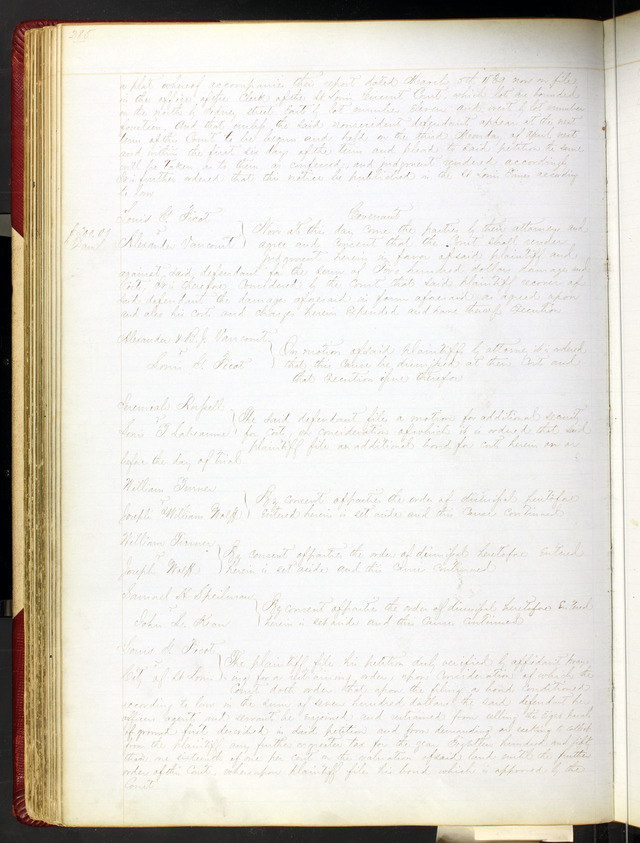 286
a plat whereof accompanies their report dated March 5th now on file
in the office of the Clerk of the St Louis Circuit Court, which lot is bounded
on the north by street, East by lot number Eleven and west by lot number
fourteen. And that unless the said nonresident defendant appear at the next
term of this Court to be begun and held on the third Monday of April next
and within the first six days of the term and plead to said petition the same
will be taken as to them as confessed and judgment rendered accordingly
It is further ordered that this notice be published in the St Louis according
to law
Louis G. Picot
vs
Alexander Vancourt
Consent
Now at this day come the parties by their attorneys and
agree and consent that the Court shall render
judgment herein in favor of said plaintiff and
against said defendant for the sum of Two hundred dollars damages and
Costs. It is therefore Considered by the Court that said plaintiff recover of
said defendant the damages aforesaid in form aforesaid, as agreed upon
and also his costs and charges herein Expended and have thereof Execution
Alexander & B. J. Vancourt
vs
Louis G. Picot
On motion of said plaintiffs by attorney it is ordered
that this Cause be dismissed at their Costs and
that Execution issue therefor
Jeremiah
vs
Louis A. Labeaume
The said defendant files a motion for additional security
for costs, on consideration of which it is ordered that said
plaintiff file an additional bond for costs herein on or
before the day of trial
William Turner
vs
Joseph & William Wolff
By consent of parties the order of dismissal heretofore
Entered herein is set aside and this Cause continued
William Turner
vs
Joseph Wolff
By consent of parties the order of dismissal heretofore Entered
herein is set aside and this Cause Continued
Samuel H Speilman
vs
John L.
By consent of parties the order of dismissal heretofore Entered
herein is set aside and this Cause Continued
Louis G. Picot
vs
City of St Louis
The plaintiff files his petition duly verified by affidavit
for a restraining order, upon Consideration of which the
Court doth order that upon the filing a bond conditioned
according to law in the sum of seven hundred dollars, the said defendant her
officers agents and servants be enjoined and restrained from selling the
of ground first described in said petition and from demanding or seeking to collect
from the plaintiff any further or greater tax for the year Eighteen hundred and fifty
than one sixteenth of one per cent on the valuation of said land until the further
order of this Court, whereupon plaintiff files his bond which is approved by the
Court